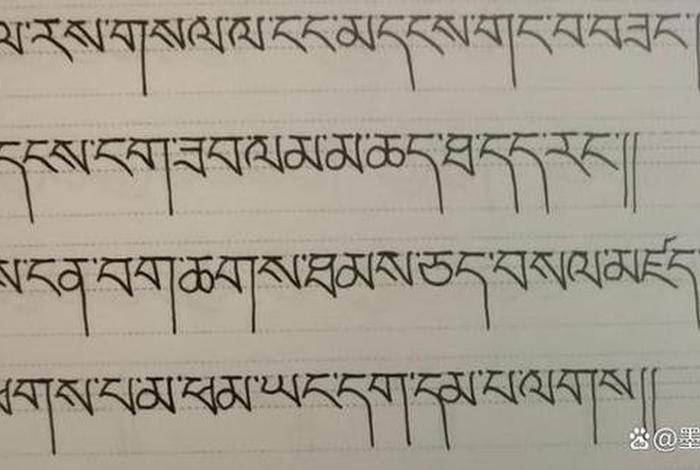 ལ་རས་གསལ་ལ་ངང་མདངས་གང་བ་བཟང།
དངས་ངག་ཟབ་ལ་མ་མཆད་ཐ་དད་རང༎
ས་ངན་བག་ཆགས་ཐམས་ཅད་བསལ་མཛད
ཕགས་པ་མ་ཕམ་ཡང་དག་དམ་པ་ལགས༎
@墨